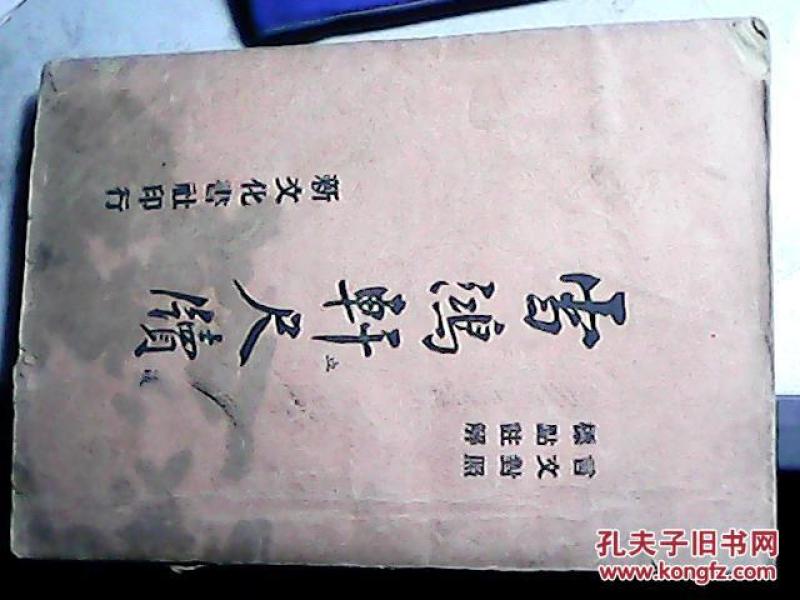 言文對照
標點註解
雪鴻軒尺牘
新文化書社印行
孔夫子旧书网
www.kongfz.com